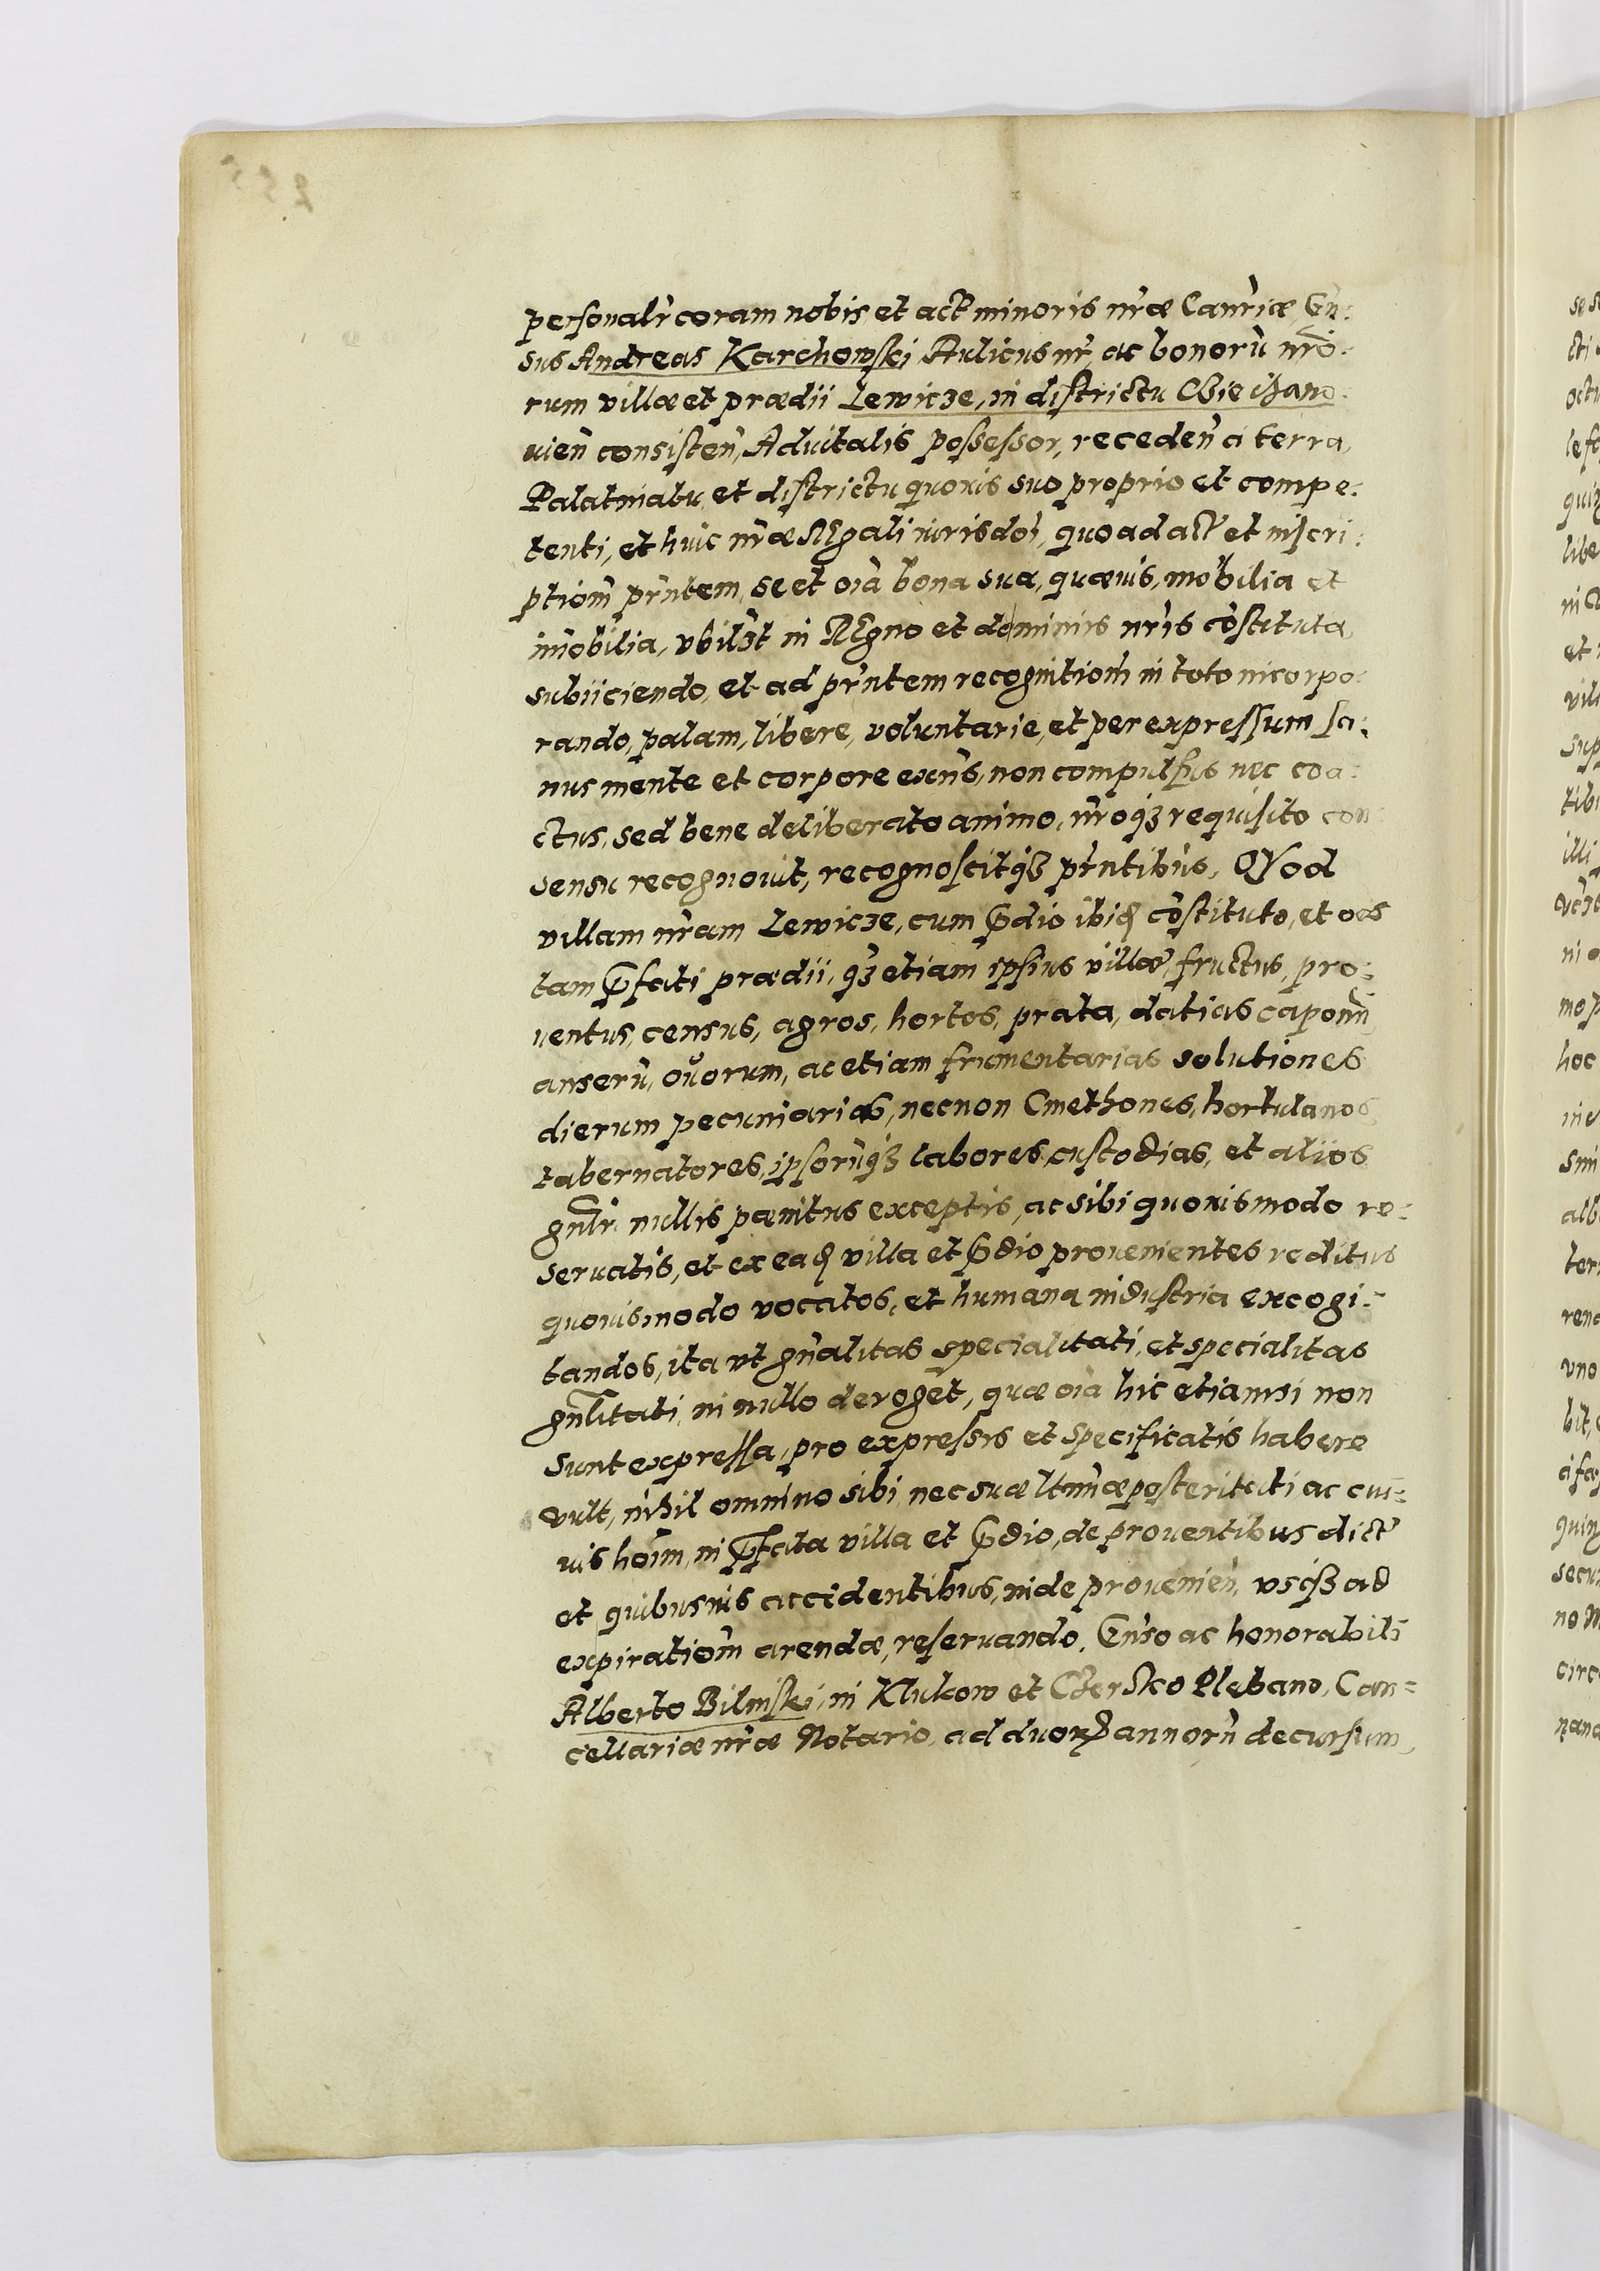 personalr̃ coram nobis et act̃ minoris nr̃æ Canr̃iæ Gñ:
sus Andreas Karchowski Aulicus nr̃ ac bonorũ nr̃o:
rum villæ et prædii Lewicze, in districtu Ciechano:
vien̄ consisten̄, Advitalis possessor, receden̄ a terra,
Palatinatu, et districtu quovis suo proprio et compe:
tenti, et huic nr̃æ REgali iurisdoi, quo ad act̃ et inscri:
ptiom̃ pñtem, se et oia bona sua, quævis, mobilia et
im̃obilia, vbilȝt in REgno et dominiis nr̃is cõstituta,
subiiciendo, et ad pr̃ntem recognitiom̃ in toto incorpo:
rando, palam, libere, voluntarie, et per expressum, sa:
nus mente et corpore exñs, non compulsus nec coa:
ctus, sed bene deliberato animo, nr̃oqȝ requisito con
sensu recognovit, recognoscitqȝ pr̃ntibus, QVod
villam nr̃am Lewicze, cum p̃dio ibiđ cõstituto, et oẽs
tam p̃fati prædii, qȝ etiam ipsius villæ, fructus, pro:
ventus, census, agros, hortos, prata, datias caponũ
anserũ, ovorum, ac etiam frumentarias solutiones
dierum pecuniarias, necnon Cmethones, hortulanos,
tabernatores, ipsorũqȝ labores, custodias, et aliios
gñlr̃ nullis pænitus exceptis, ac sibi quovismodo re:
servatis, et ex eađ villa et p̃dio provenientes reditus
quovismodo vocatos, et humana industria excogi:
tandos, ita vt gñalitas specialitati, et specialitas
gñlitati in nullo deroget, quæ oia hic etiamsi non
sunt expressa, pro expressis et specificatis habere
vult, nihil omnino sibi nec suæ ltimæ posteritati ac cui:
vis hoim, in p̃fata villa et p̃dio, de proventibus dict̃
et quibusvis accidentibus, inde provenien̄, vsqȝ ad
expiratiom̃ arendæ, reservando, Gñso ac honorabili
Alberto Bilinski, in Klukow et Czersko Plebano, Can:
cellariæ nr̃æ Notario, ad duorȝ annorũ decursum,